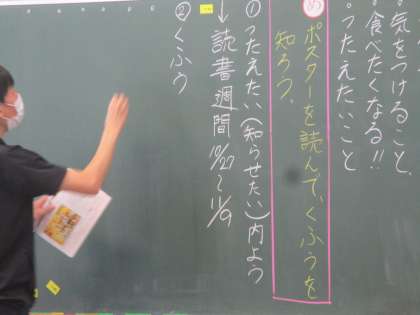 ・気をつけること、
・食べたくなる!!
・つたえたいこと
め
ポスターを読んで、くふうを
知ろう。
①つたえたい(知らせたい)内よう
↓読書週間 10/27〜11/9
②くふう